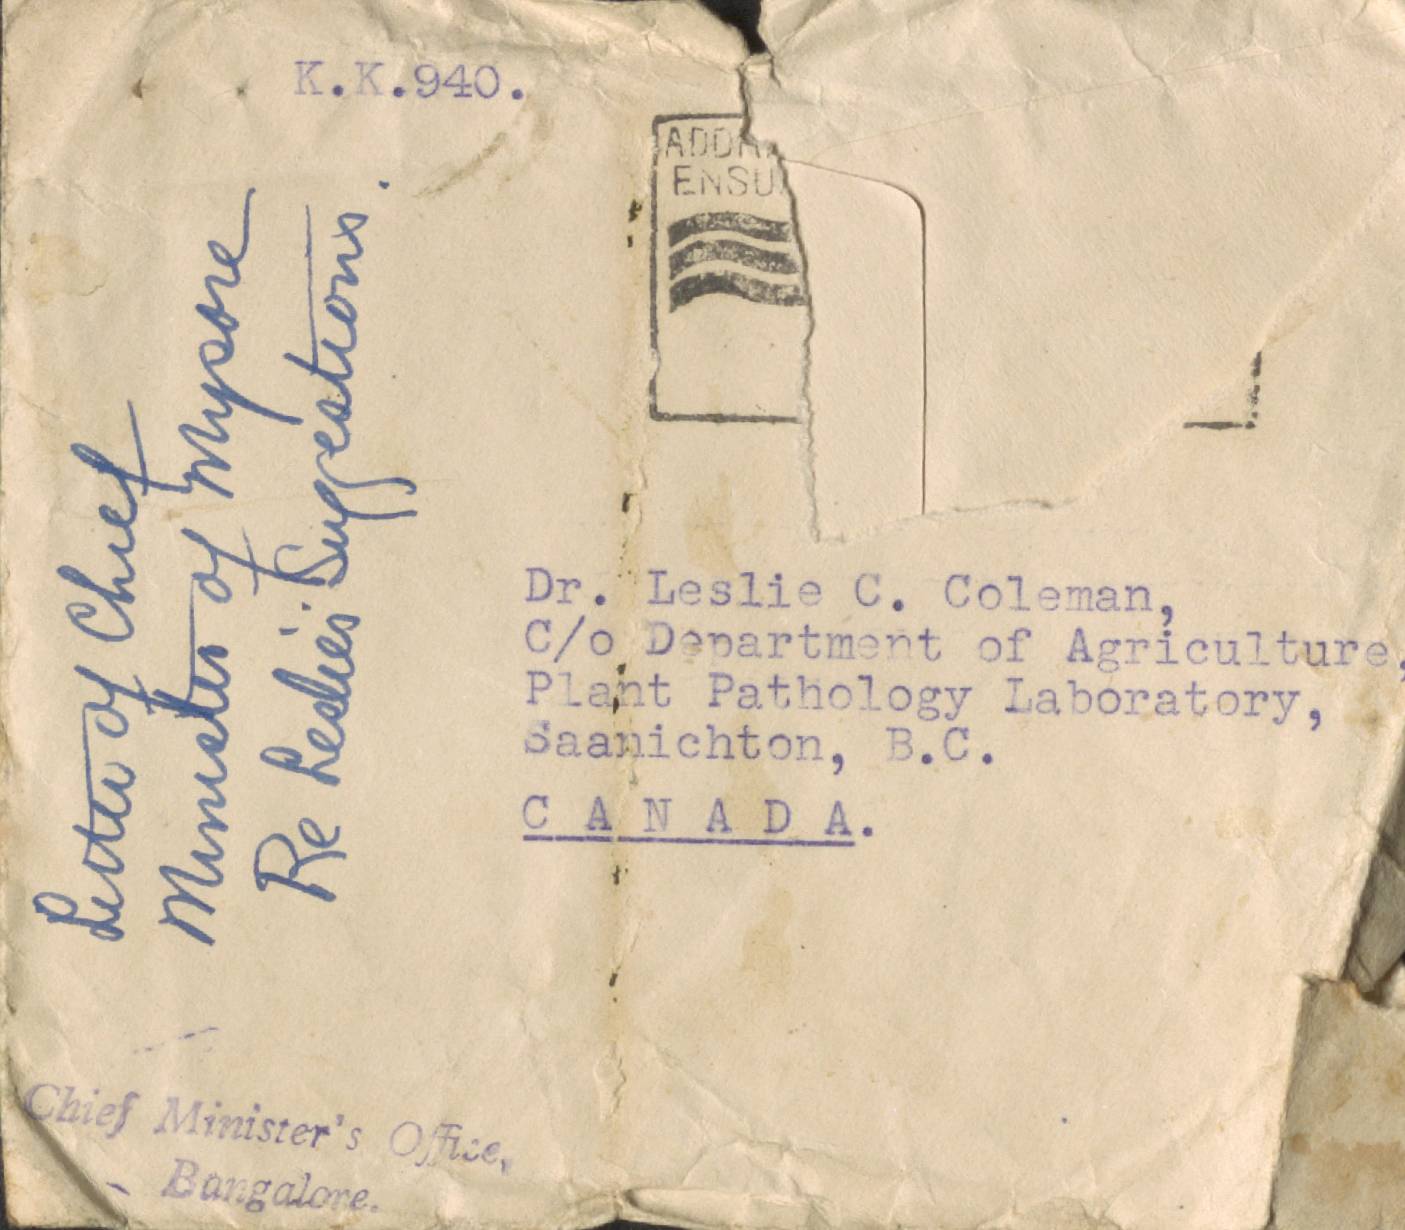 K.K.940.
ADDR
ENSU
Letter of Chief
Minister of Mysore
Re Leslie's Suggestions.
Dr. Leslie C. Coleman,
C/o Department of Agriculture,
Plant Pathology Laboratory,
Saanichton, B.C.
C A N A D A.
Chief Minister's Office,
Bangalore.